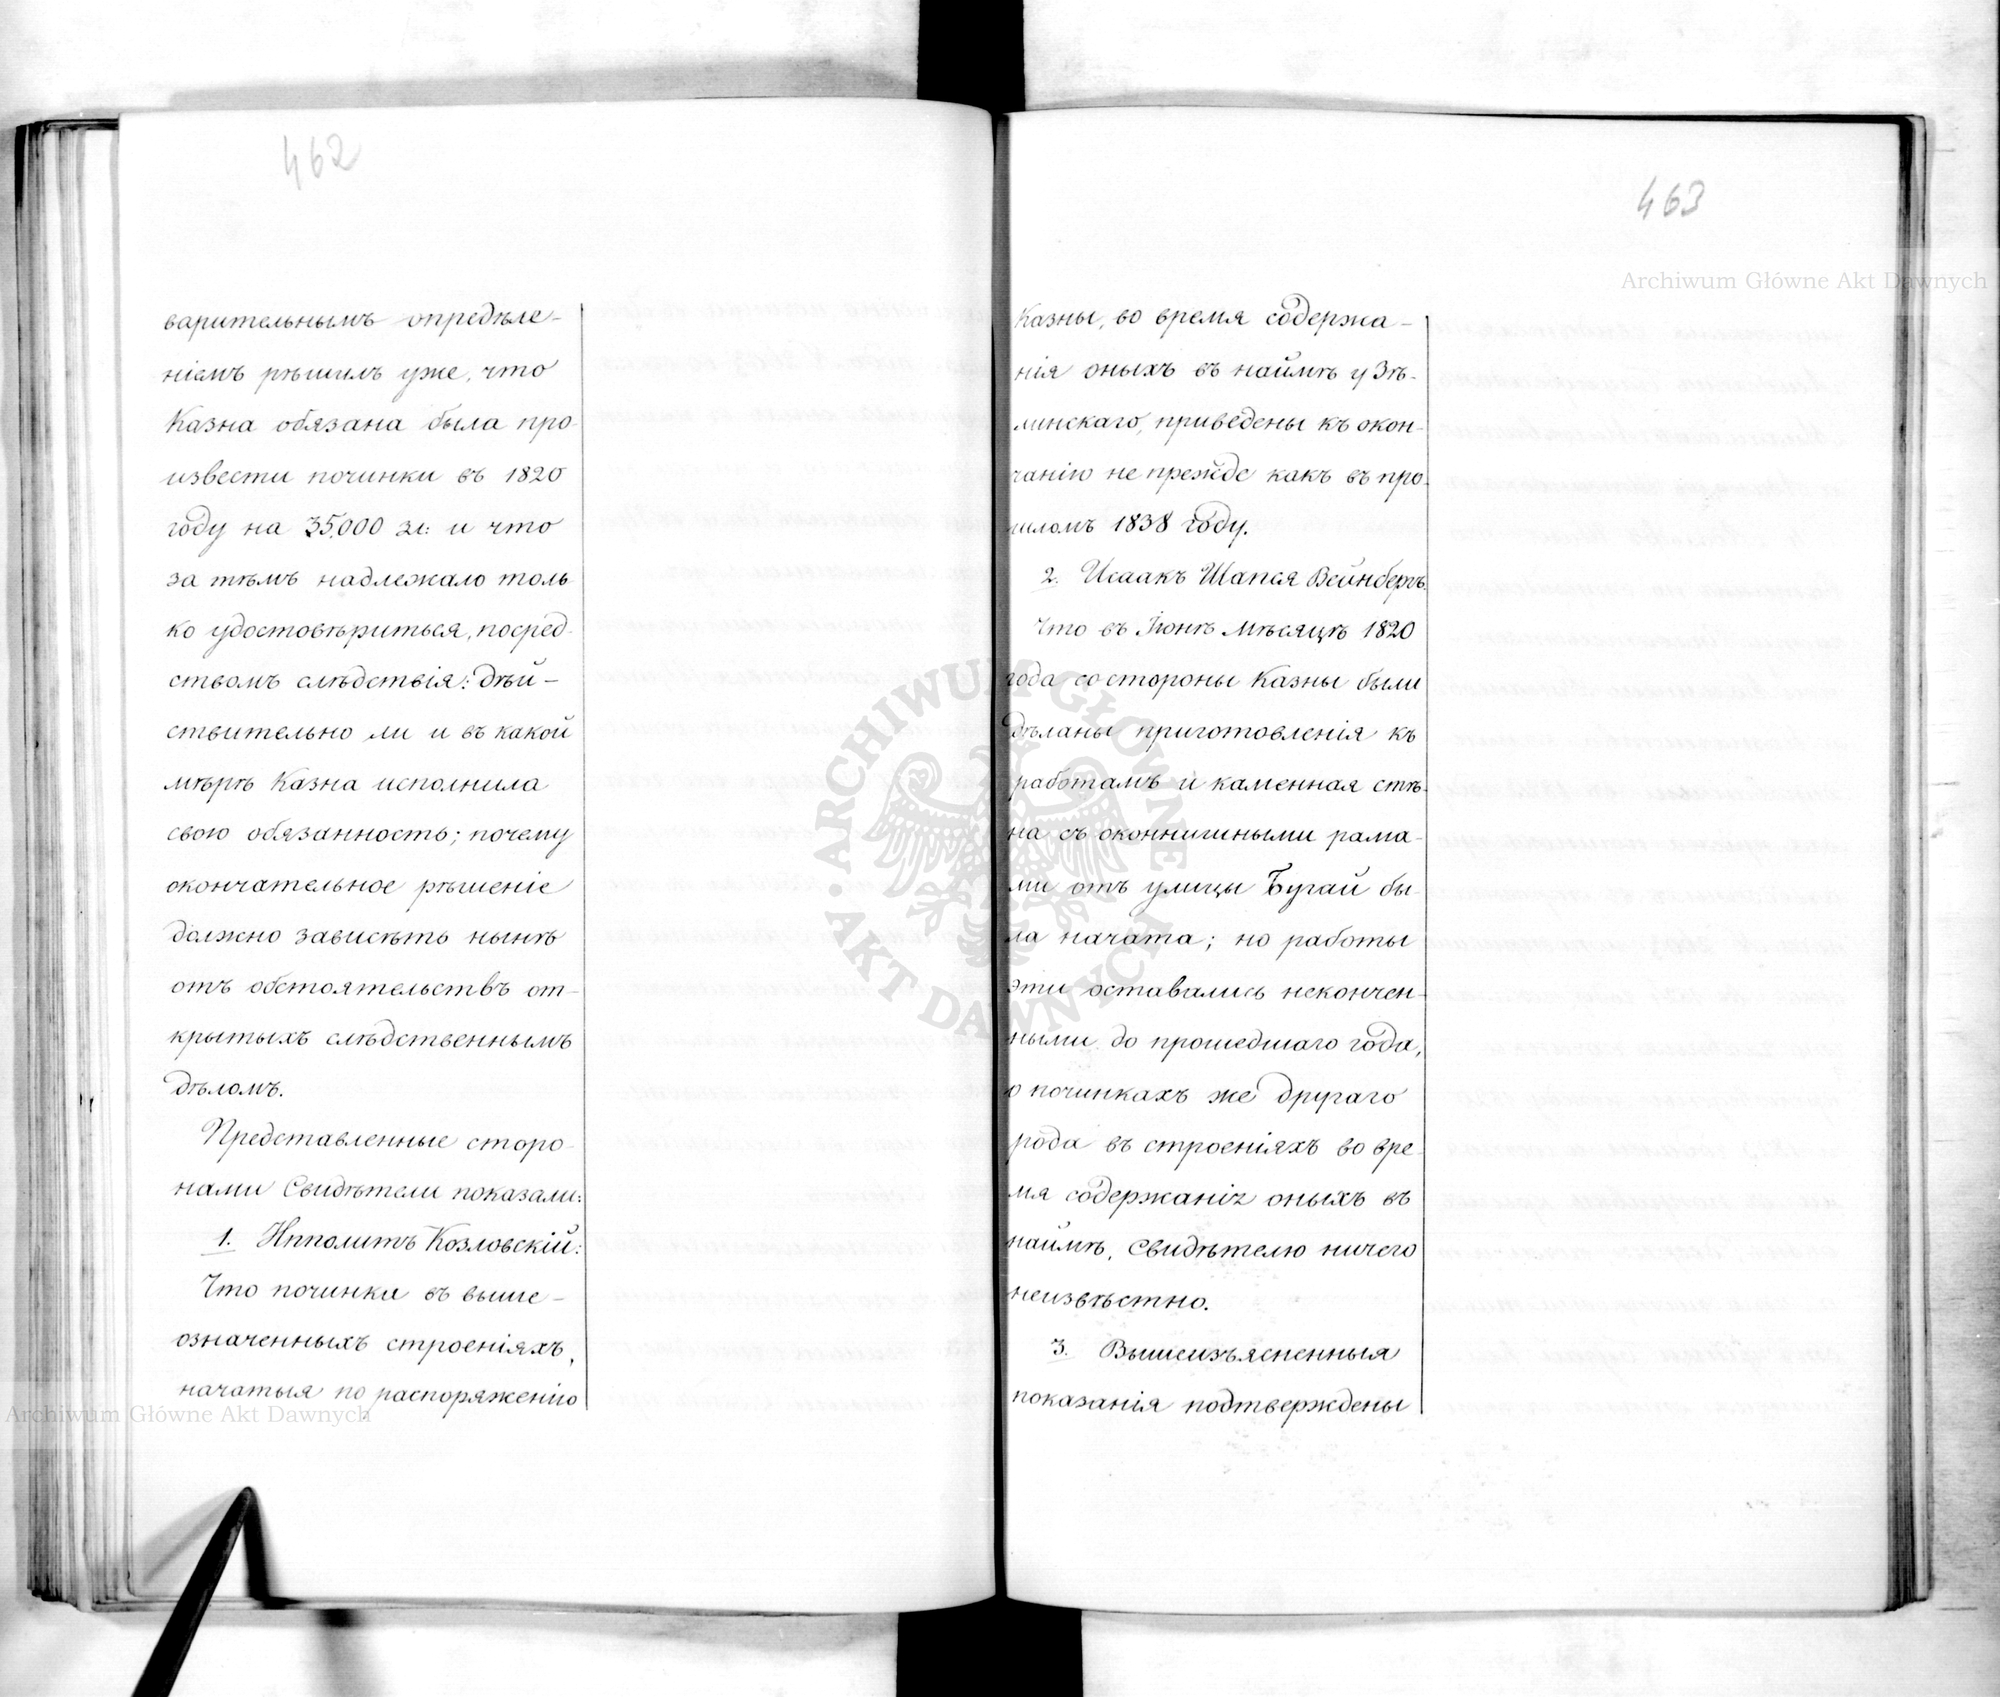 462
варительнымъ опредѣле-
ніемъ рѣшилъ уже, что
Казна обязана была про-
извести починки въ 1820
году на 35,000 зл: и что
за тѣмъ надлежало толь
ко удостовѣриться, посред-
ствомъ слѣдствія: дѣй-
ствительно ли и въ какой
мѣрѣ Казна исполнила
свою обязанность; почему
окончательное рѣшеніе
должно зависѣть нынѣ
отъ обстоятельствъ от-
крытыхъ слѣдственнымъ
дѣломъ.
Представленные сторо-
нами Свидѣтели показали:
1. Ипполитъ Козловскій:
Что починки въ выше-
означенныхъ строеніяхъ,
начатыя по распоряженію
463
Казны, во время содержа-
нія оныхъ въ наймѣ у Зѣ-
линскаго, приведены къ окон-
чанію не прежде какъ въ про-
шломъ 1838 году.
2. Исаакъ Шапся Вейнбергъ.
Что въ Іюнѣ Мѣсяцѣ 1820
года со стороны Казны были
дѣланы приготовленія къ
работамъ и каменная стѣ-
на съ оконничными рама-
ми отъ улицы Бугай бы-
ла начата; но работы
эти оставались некончен-
ными до прошедшаго года,
о починкахъ же другаго
рода въ строеніяхъ во вре-
мя содержанія оныхъ въ
наймѣ, Свидѣтелю ничего
неизвѣстно.
3. Вышеизъясненныя
показанія подтверждены
Archiwum Główne Akt Dawnych
ARCHIWUM GŁÓWNE AKT DAWNYCH
Archiwum Główne Akt Dawnych